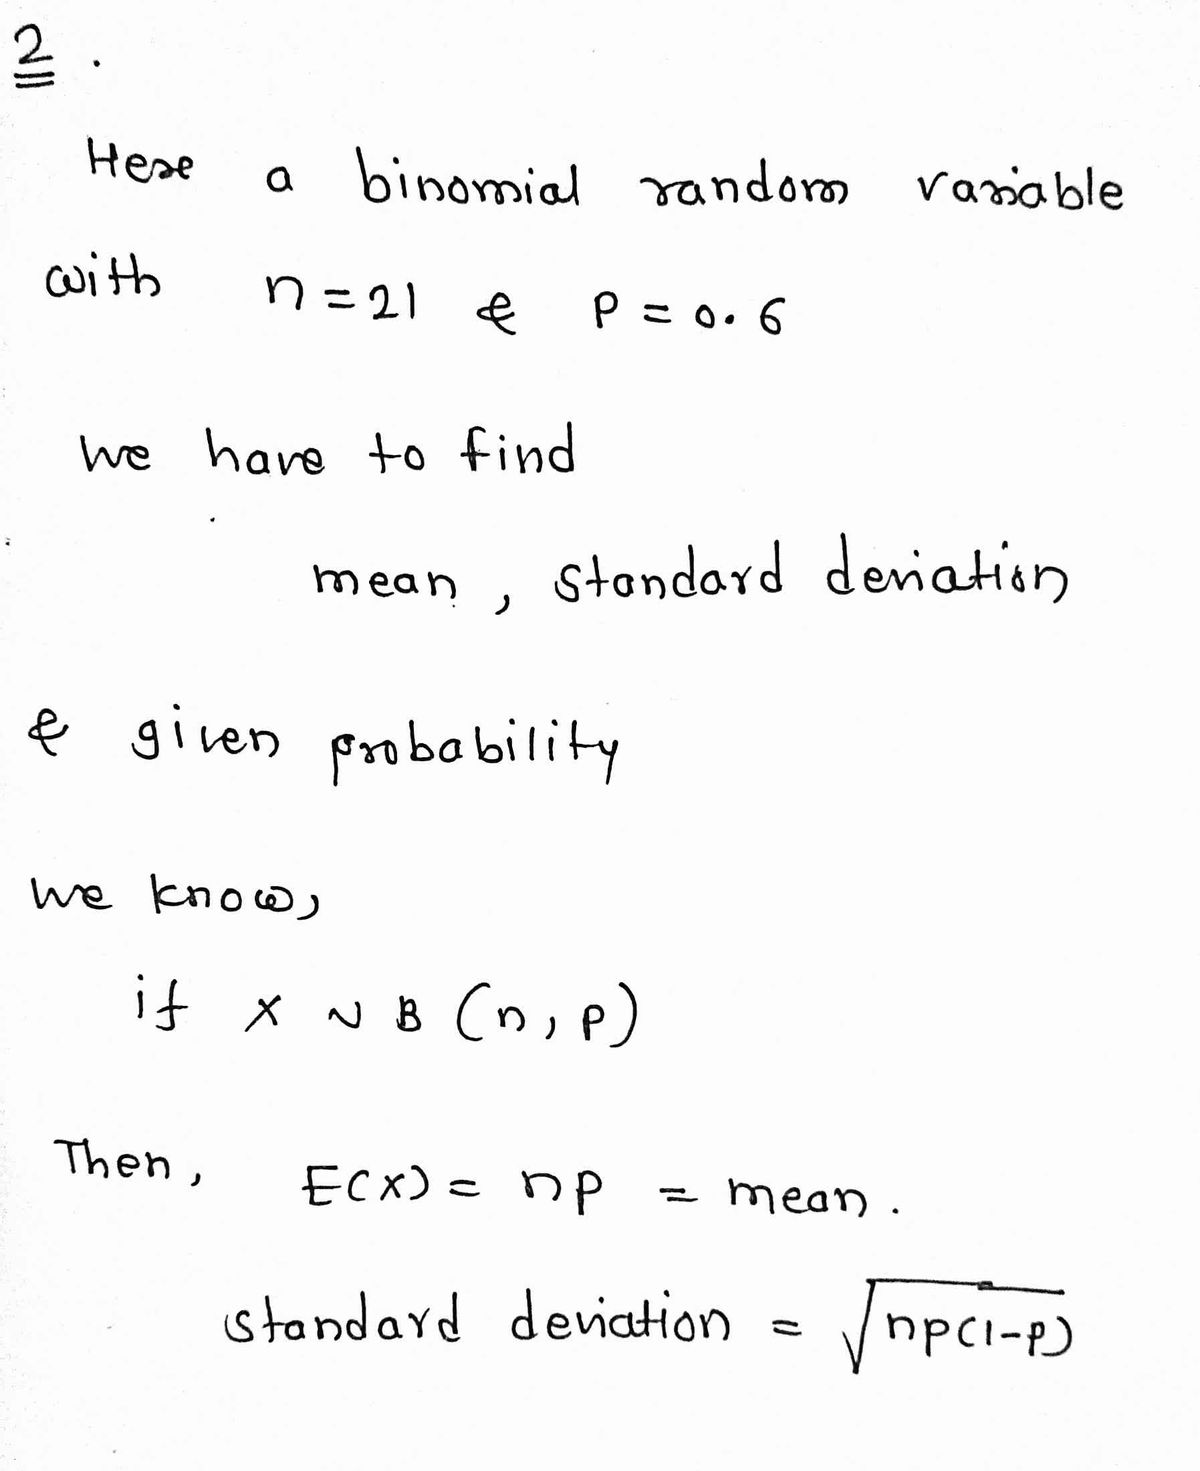 2.
Here a binomial random variable
with n = 21 & P = 0.6
we have to find
mean, standard deviation
& given probability
we know,
if X ~ B (n, p)
Then, E(X) = np = mean.
standard deviation = √np(1-p)